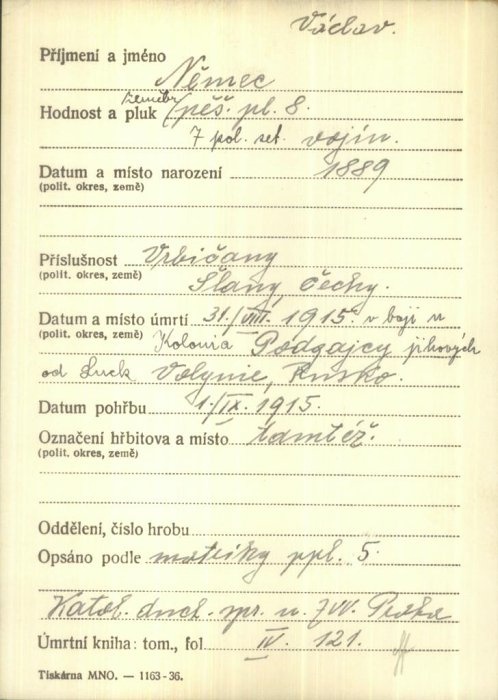 Václav.
Příjmení a jméno Němec
Hodnost a pluk (zeměbr. pěš. pl. 8.
7 pol. set. vojín.
Datum a místo narození 1889
(polit. okres, země)
Příslušnost Vrbičany
(polit. okres, země) Slaný, Čechy.
Datum a místo úmrtí 31./VIII. 1915. v boji u
(polit. okres, země) Kolonia Podgajcy jihových
od Luck Volynie, Rusko.
Datum pohřbu 1./IX. 1915.
Označení hřbitova a místo tamtéž.
(polit. okres, země)
Oddělení, číslo hrobu
Opsáno podle matriky ppl. 5.
Katol. duch. spr. u ZVV. Praha
Úmrtní kniha: tom., fol IV. 121.
Tiskárna MNO. — 1163-36.